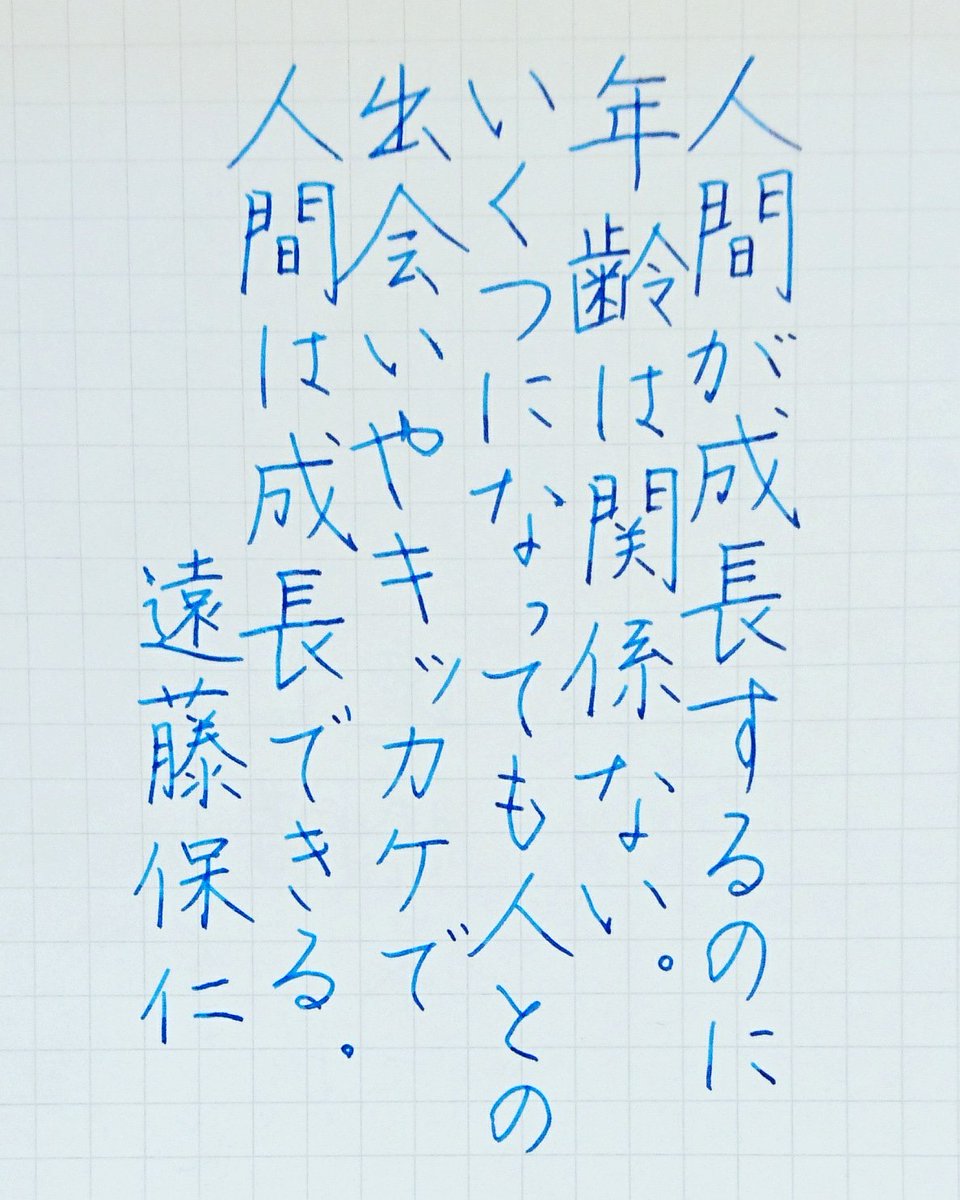 人間が成長するのに
年齢は関係ない。
いくつになっても人との
出会いやキッカケで
人間は成長できる。
遠藤保仁